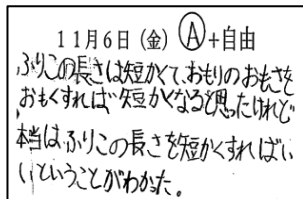 11月6日（金）Ⓐ+自由
ふりこの長さは短かくて、おもりのおもさを
おもくすれば短かくなると思ったけれど
本当は、ふりこの長さを短かくすればい
いということがわかった。